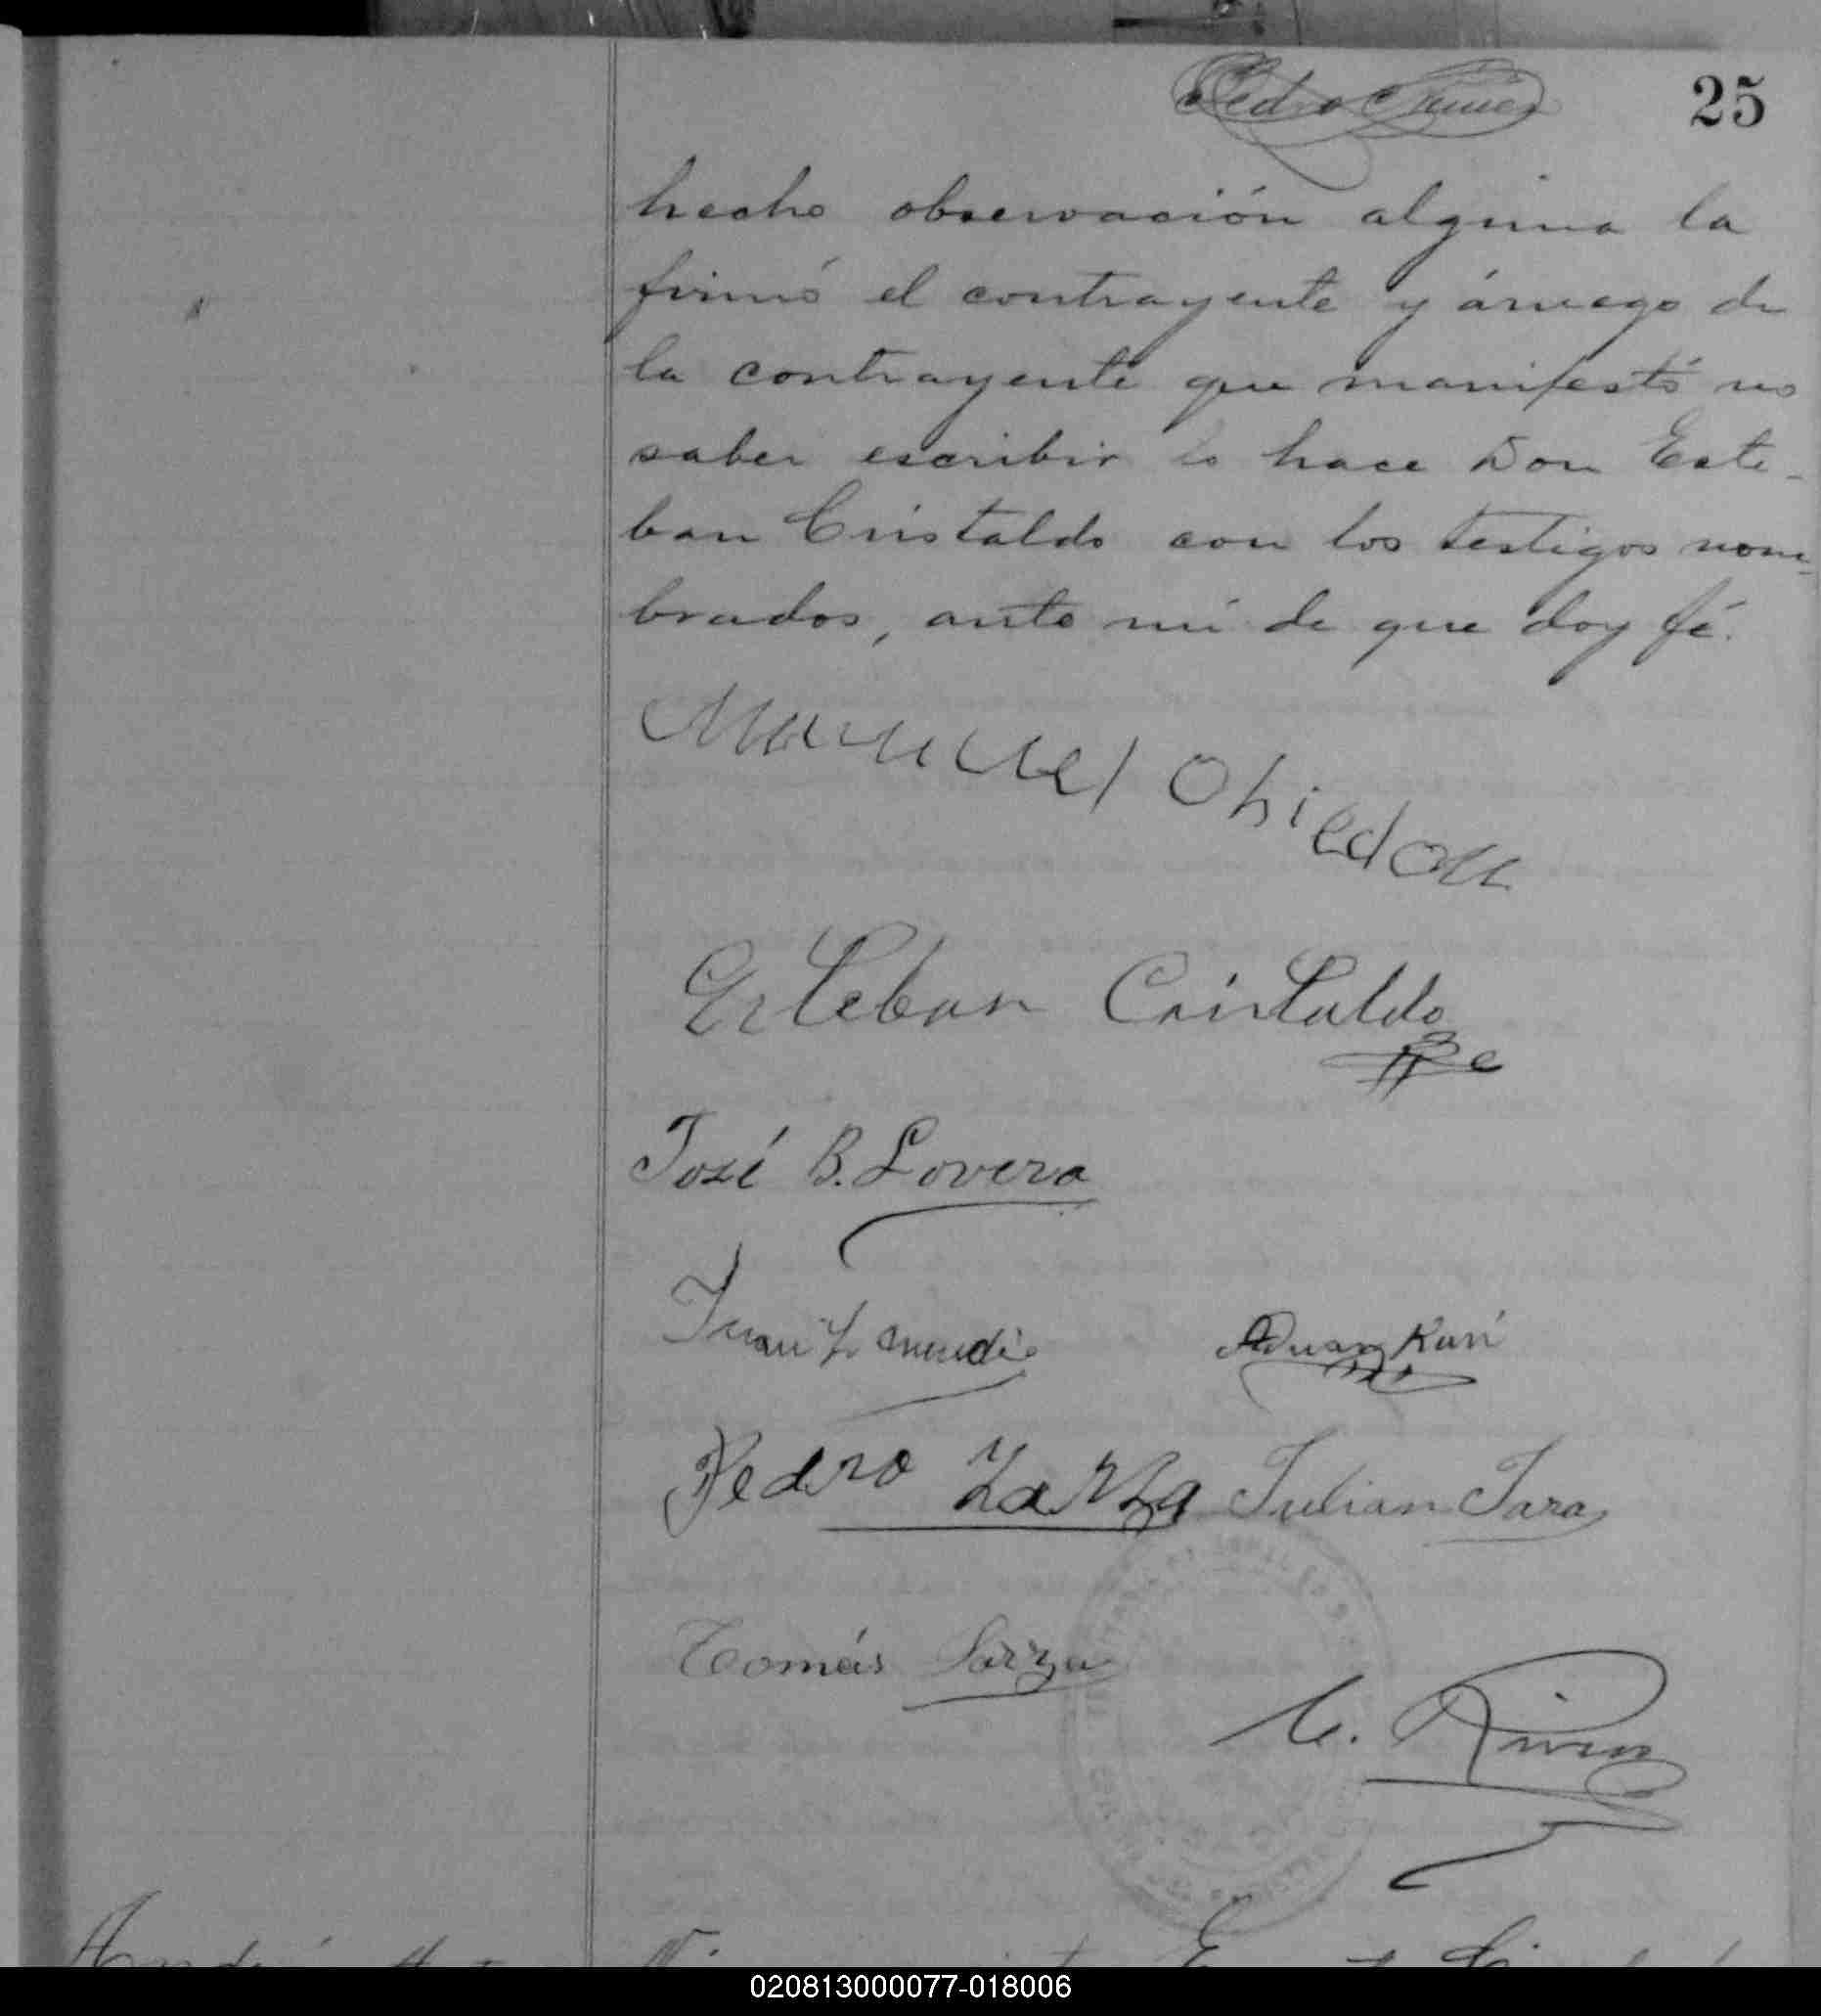 Pedro
25
hecho observación alguna la
firmó el contrayente y áruego de
la contrayente que manifestó no
saber escribir lo hace Don Este-
ban Cristaldo con los testigos nom-
brados, ante mí de que doy fé.
Manuel Obiedou
Esteban Cristaldo
José B. Lovera
Juan
Pedro Zarza Julian Jara
Tomás
C.
020813000077-018006